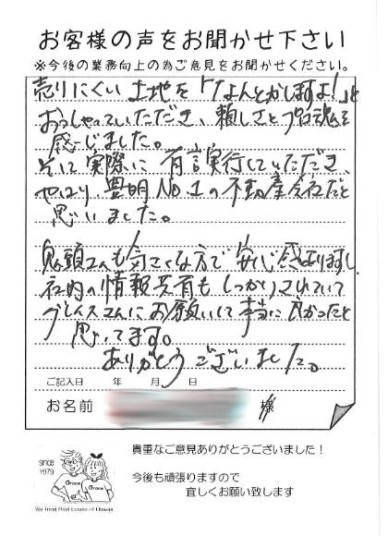 お客様の声をお聞かせ下さい
※今後の業務向上の為ご意見をお聞かせください。
売りにくい土地を「なんとかしますよ!」と
おっしゃっていただき、頼しさとプロ魂を
感じました。
そして実際に有言実行していただき、
やはり、豊明No.1の不動産会社だと
思いました。
鬼頭さんも気さくな方で安心感ありますし、
社内の情報共有もしっかりされていて
グレイスさんにお願いして本当に良かったと
思ってます。
ありがとうございました。
ご記入日 年 月 日
お名前 様
貴重なご意見ありがとうございました!
SINCE
1979
今後も頑張りますので
宜しくお願い致します
Grace
Grace